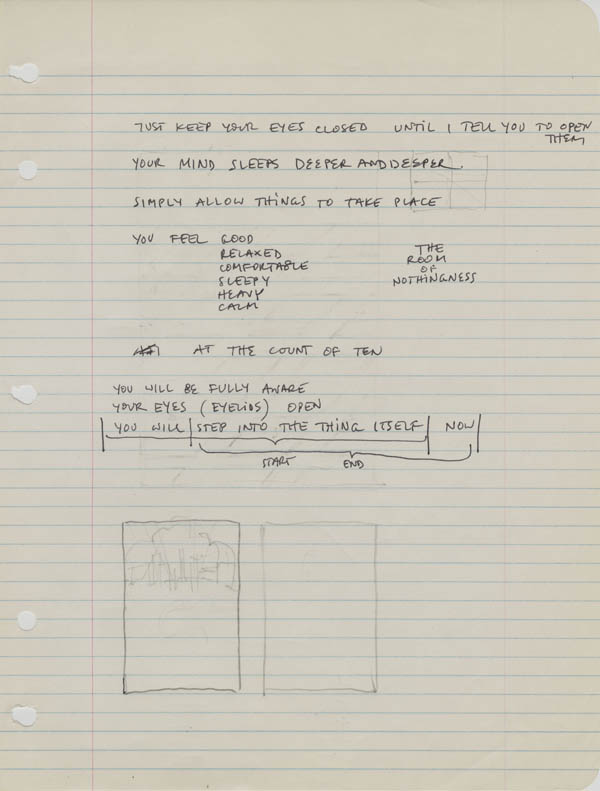 JUST KEEP YOUR EYES CLOSED UNTIL I TELL YOU TO OPEN
THEM
YOUR MIND SLEEPS DEEPER AND DEEPER.
SIMPLY ALLOW THINGS TO TAKE PLACE
YOU FEEL GOOD
RELAXED
COMFORTABLE
SLEEPY
HEAVY
CALM
THE
ROOM
OF
NOTHINGNESS
AT THE COUNT OF TEN
YOU WILL BE FULLY AWARE
YOUR EYES (EYELIDS) OPEN
YOU WILL STEP INTO THE THING ITSELF NOW
START END